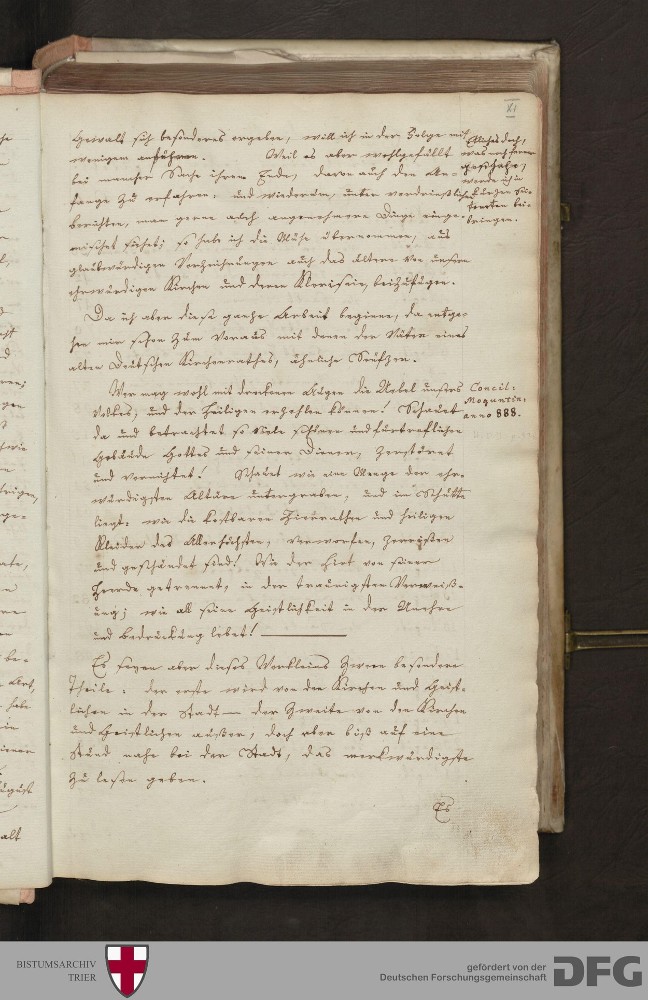 XI
Gewalt sich besonders ergeben, will ich in der Folge mit
wenigem anführen. Weil es aber wohlgefällt
bei mancher Sache ihrem Ende, davon auch den An-
fange zu erfahren; und wiederum, unter verdrießlichen
berichten, man gerne auch angenehmere Dinge einge-
mischet siehet; so habe ich die Mühe übernommen, aus
glaubwürdigen Verzeichnungen auch das Ältere von unsern
ehrwürdigen Kirchen und deren Klerisei, beizufügen.
kurzen
bringen.
Da ich aber diese ganze Arbeit beginne, da entge-
hen mir schon zum Voraus mit denen den Vätern eines
alten Deutschen Kirchenrathes, ähnliche Seufzer.
Wer mag wohl mit trockenen Augen die Uebel unsers
Volkes, und der Heiligen erzehlen können! Schauet
da und betrachtet so viele schöne und fürtrefliche
Gebäude Gottes und seiner Diener, zerstöret
und vernichtet! Schauet wie eine Menge der ehr-
würdigsten Altäre untergraben, und im Schutte
liegt: wie die kostbaren Zierrathen und heiligen
Kleider des Allerhöchsten, verworfen, zerrissen
und geschändet sind! Wie der Hirt von seiner
Heerde getrennet, in der traurigsten Verweiß-
ung; wie all seine Geistlichkeit in der Unehre
und Bedrückung lebet!
Concil:
Moguntin:
anno 888.
Es seyen aber dieses Werkleins zween besondere
Theile: der erste wird von den Kirchen und Geist-
lichen in der Stadt — der Zweite von den Kirchen
und Geistlichen außer, doch aber biß auf eine
Stund nahe bei der Stadt, das merkwürdigste
zu lesen geben.
Es
BISTUMSARCHIV
TRIER
gefördert von der
Deutschen Forschungsgemeinschaft
DFG